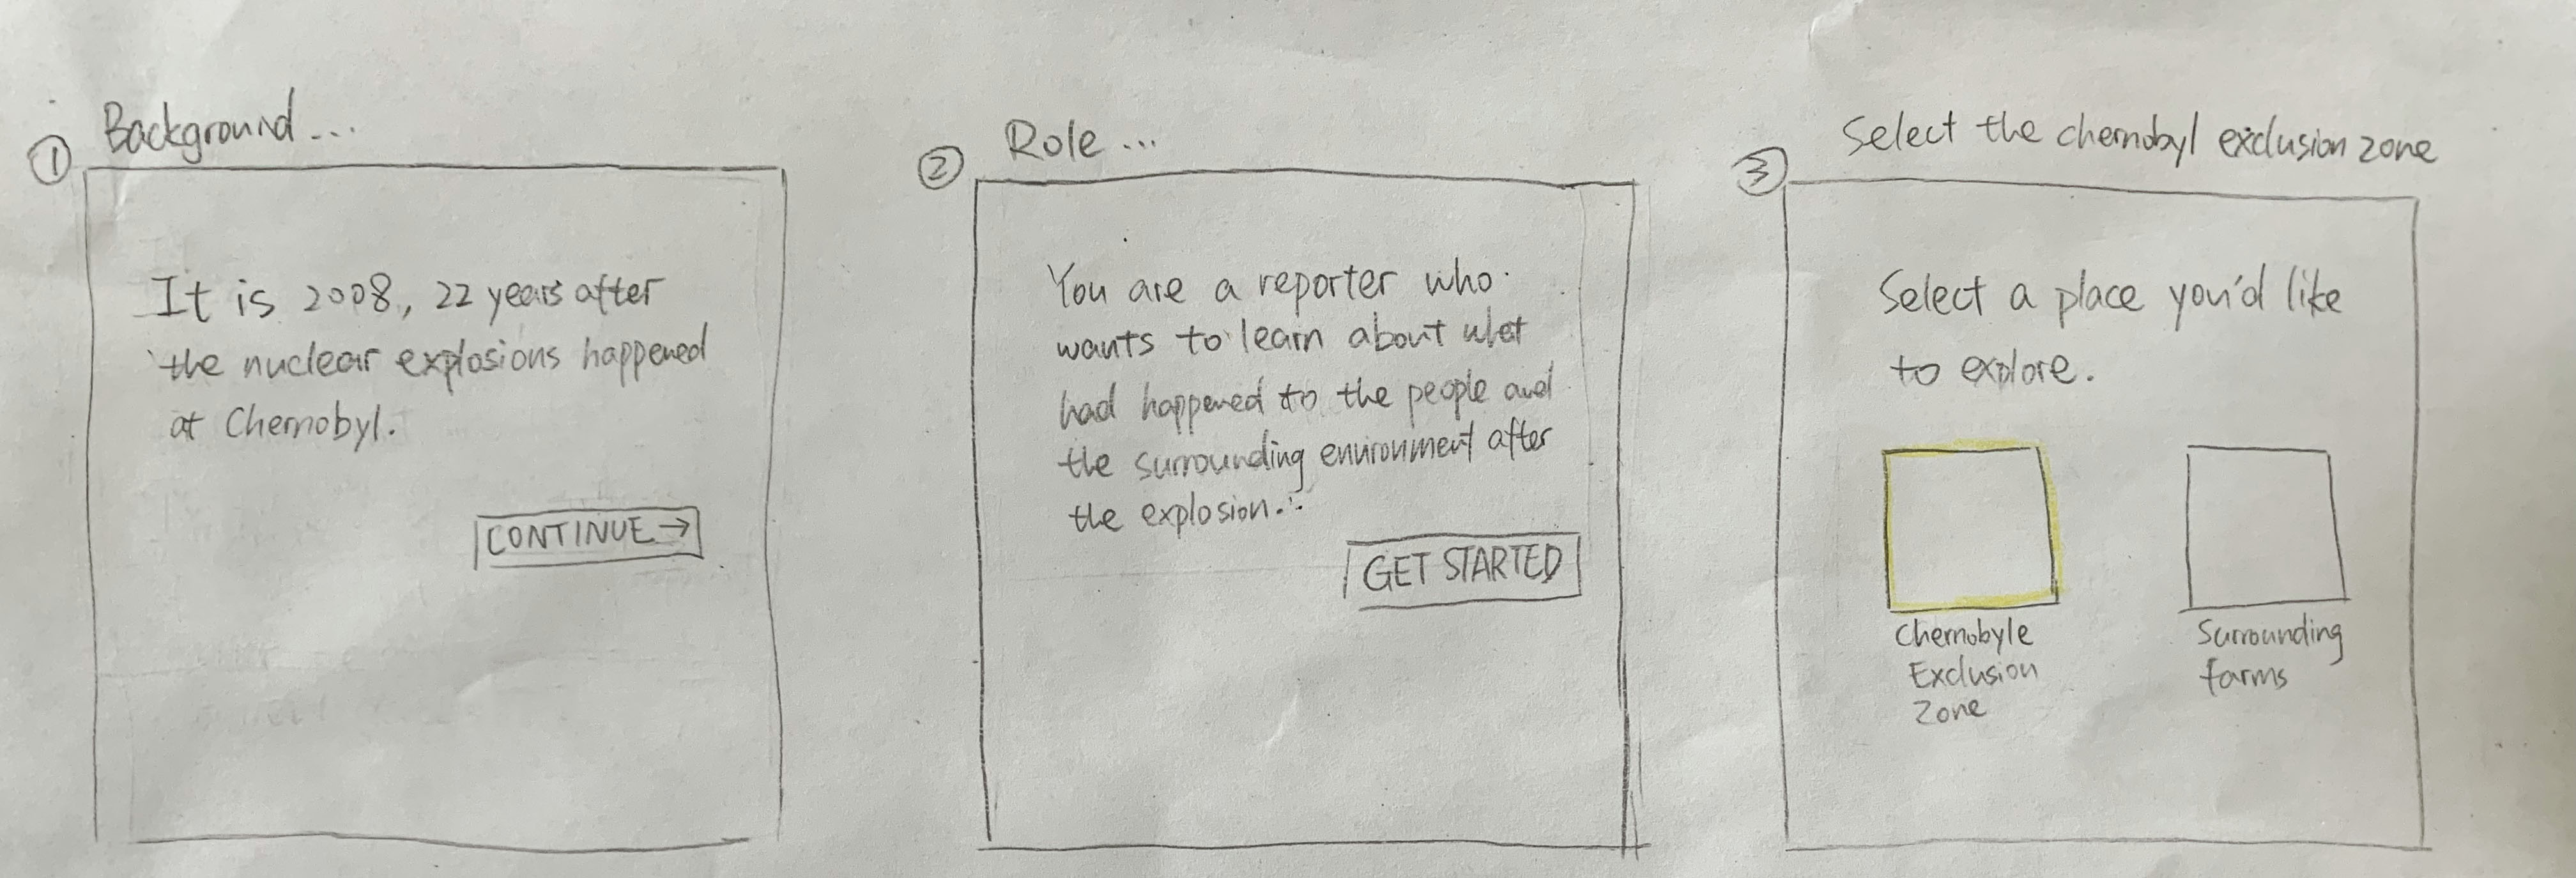 ① Background...
It is 2008, 22 years after
the nuclear explosions happened
at Chernobyl.
CONTINUE →
② Role...
You are a reporter who
wants to learn about what
had happened to the people and
the surrounding environment after
the explosion.
GET STARTED
③ Select the chernobyl exclusion zone
Select a place you'd like
to explore.
Chernobyle
Exclusion
Zone
Surrounding
farms